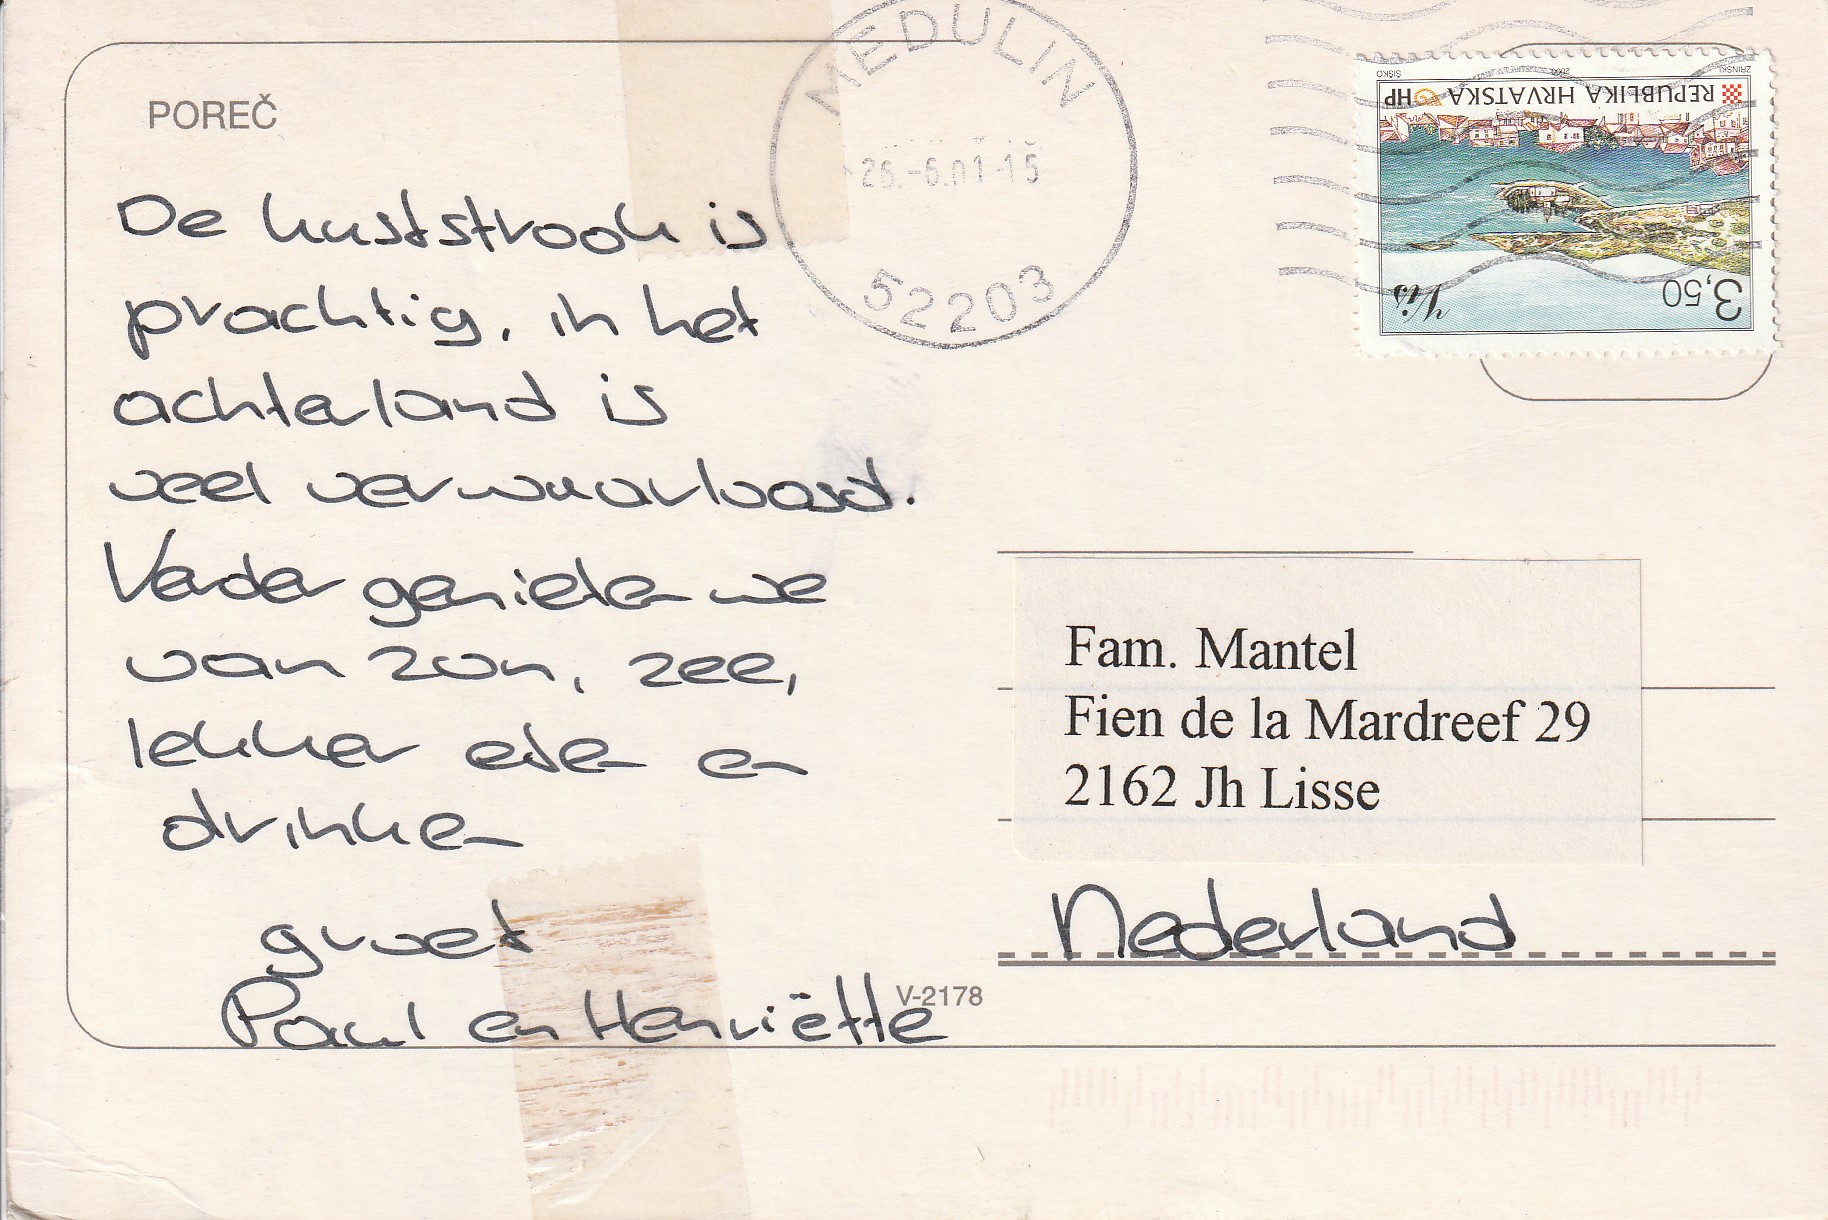 POREČ
MEDULIN
26.-6.01-15
52203
ŠIŠKO 2000 ZRINSKI
REPUBLIKA HRVATSKA HP
Vis
3,50
De kuststrook is
prachtig, in het
achterland is
veel verwaarloosd.
Verder genieten we
van zon, zee,
lekker eten en
drinken
groet
Paul en Henriëtte
V-2178
Fam. Mantel
Fien de la Mardreef 29
2162 Jh Lisse
Nederland